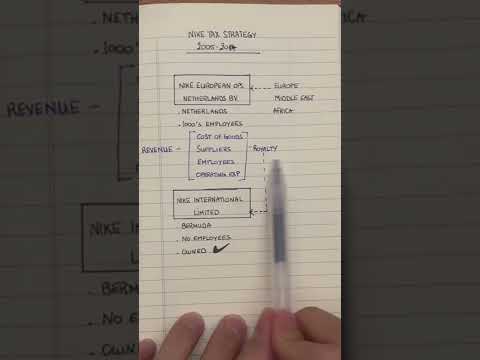 NIKE TAX STRATEGY
2005-2014
NIKE EUROPEAN OPS
NETHERLANDS BV
EUROPE
MIDDLE EAST
AFRICA
. NETHERLANDS
. 1000's EMPLOYEES
REVENUE -
COST OF GOODS
SUPPLIERS
EMPLOYEES
OPERATING EXP
- ROYALTY
NIKE INTERNATIONAL
LIMITED
. BERMUDA
. NO EMPLOYEES
. OWNED ✔
REVENUE -
NIKE
LI
. BERM
. NO E
. OWN